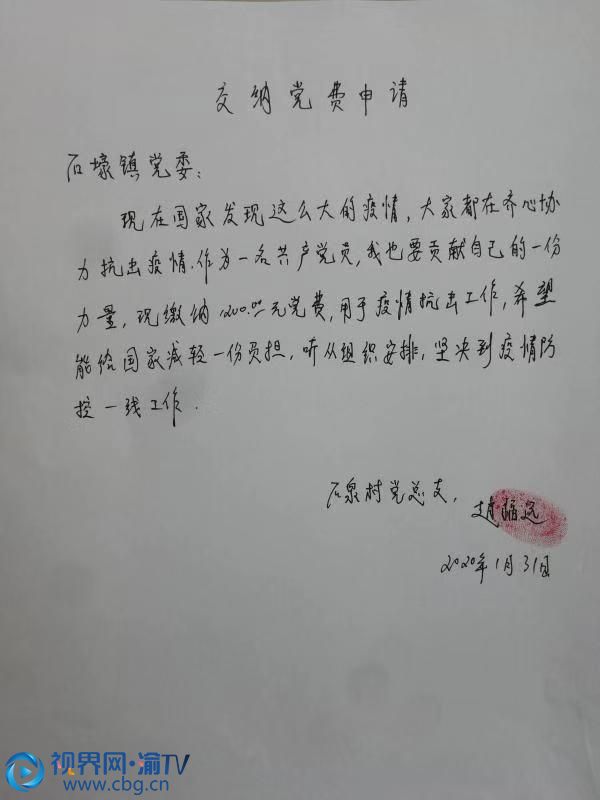 交纳党费申请
石壕镇党委：
现在国家发现这么大的疫情，大家都在齐心协
力抗击疫情.作为一名共产党员，我也要贡献自己的一份
力量，现缴纳1200.00元党费，用于疫情抗击工作，希望
能给国家减轻一份负担，听从组织安排，坚决到疫情防
控一线工作.
石泉村党总支，
赵福远
2020年1月31日
视界网·渝TV
www.cbg.cn